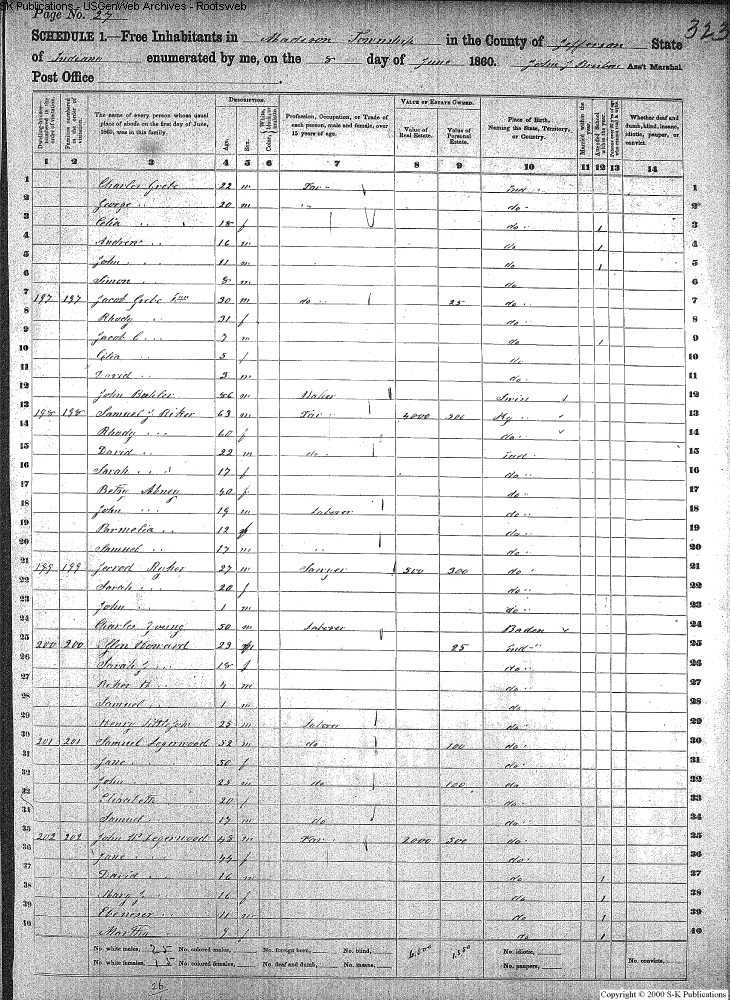 SK Publications - USGenWeb Archives - Rootsweb
Page No. 27
323
SCHEDULE 1.—Free Inhabitants in Madison Township in the County of Jefferson State
of Indiana enumerated by me, on the 8 day of June 1860. John J Ass't Marshal
Post Office
Dwelling-houses—numbered in the order of visitation.
Families numbered in the order of visitation.
The name of every person whose usual place of abode on the first day of June, 1860, was in this family.
DESCRIPTION.
Age.
Sex.
Color, White, black, or mulatto.
Profession, Occupation, or Trade of each person, male and female, over 15 years of age.
VALUE OF ESTATE OWNED.
Value of Real Estate.
Value of Personal Estate.
Place of Birth, Naming the State, Territory, or Country.
Married within the year.
Attended School within the year.
Whether deaf and dumb, blind, insane, idiotic, pauper, or convict.
1 2 3 4 5 6 7 8 9 10 11 12 13 14
1 Charles Grebe 22 m Far Ind 1
2 George " 20 m " do 2
3 Celia " 18 f do 1 3
4 Andrew " 16 m do 1 4
5 John " 11 m do 1 5
6 Simon " 8 m do 6
7 197 197 Jacob Grebe 30 m do 25 do 7
8 Rhody " 31 f do 8
9 Jacob C " 7 m do 1 9
10 Celia " 5 f do 10
11 David " 3 m do 11
12 John 86 m Swiss 12
13 198 198 Samuel J Riker 63 m Far 4000 300 Ky 13
14 Rhody " 60 f do 14
15 David " 22 m do Ind 15
16 Sarah " 17 f do 16
17 Betsy Abney 40 f do 17
18 John " 19 m Laborer do 18
19 Parmelia " 12 f do 19
20 Samuel " 17 m " do 20
21 199 199 Jerrod Ryker 27 m Sawyer 300 300 do 21
22 Sarah " 20 f do 22
23 John " 1 m do 23
24 Charles Young 50 m Laborer Baden 24
25 200 200 Howard 29 25 Ind 25
26 Sarah J " 18 f do 26
27 Riker H " 4 m do 27
28 Samuel " 1 m do 28
29 Henry Littlejohn 25 m Laborer do 29
30 201 201 Samuel Legerwood 52 m do 100 do 30
31 Jane " 50 f do 31
32 John " 25 m do 100 do 32
33 Elizabeth 20 f do 33
34 Samuel 17 m do do 34
35 202 202 John W Legerwood 45 m Far 2000 500 do 35
36 Jane " 44 f do 36
37 David " 16 m do 1 37
38 Mary J " 16 f do 1 38
39 Ebenezer " 11 m do 1 39
40 Martha " 9 f do 1 40
No. white males, 25 No. colored males, No. foreign born, No. blind, No. idiotic,
No. white females, 15 No. colored females, No. deaf and dumb, No. insane, No. paupers, No. convicts,
26
Copyright © 2000 S-K Publications